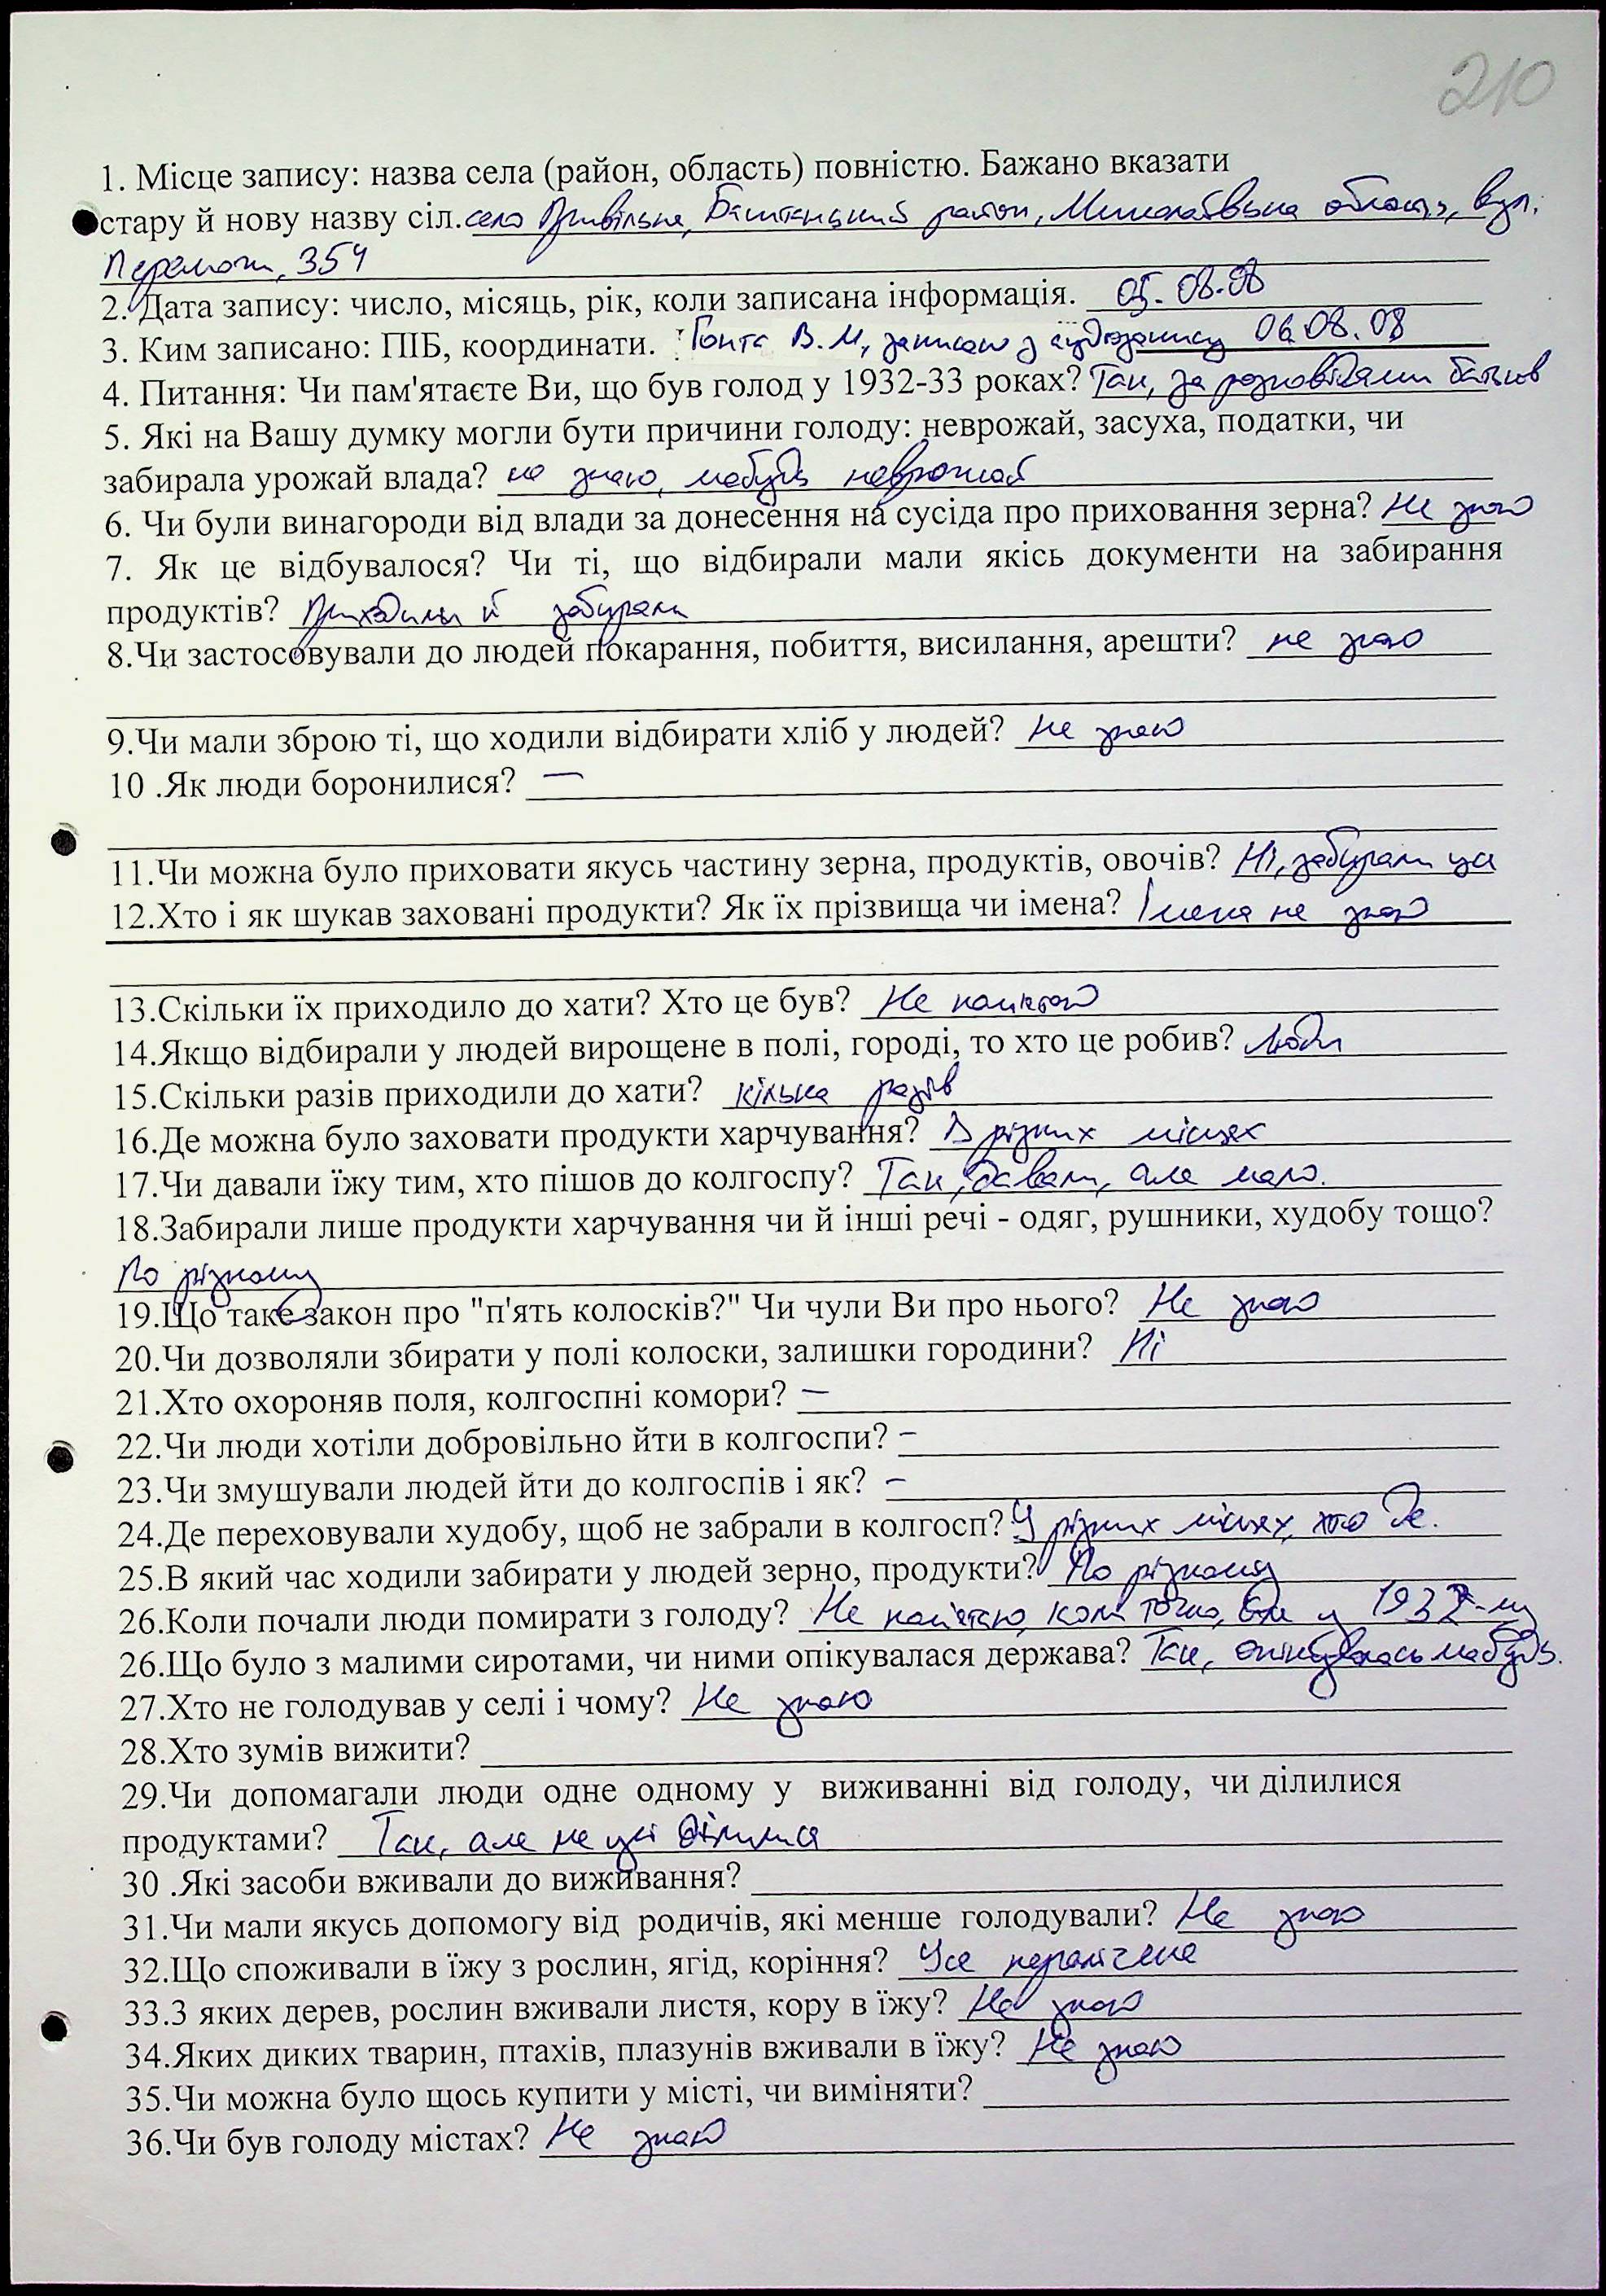 210
1. Місце запису: назва села (район, область) повністю. Бажано вказати
стару й нову назву сіл. село Привільне, Баштанський район, Миколаївська область, вул.
Перемоги, 354
2. Дата запису: число, місяць, рік, коли записана інформація. 05.08.08
3. Ким записано: ПІБ, координати. Гонта В.М, записано з аудіозапису 06.08.08
4. Питання: Чи пам'ятаєте Ви, що був голод у 1932-33 роках? Так, за розповідями батьків
5. Які на Вашу думку могли бути причини голоду: неврожай, засуха, податки, чи
забирала урожай влада? не знаю, мабудь неврожай
6. Чи були винагороди від влади за донесення на сусіда про приховання зерна? Не знаю
7. Як це відбувалося? Чи ті, що відбирали мали якісь документи на забирання
продуктів? Приходили й забирали
8.Чи застосовували до людей покарання, побиття, висилання, арешти? не знаю
9.Чи мали зброю ті, що ходили відбирати хліб у людей? Не знаю
10 .Як люди боронилися? —
11.Чи можна було приховати якусь частину зерна, продуктів, овочів? Ні, забирали усе
12.Хто і як шукав заховані продукти? Як їх прізвища чи імена? Імена не знаю
13.Скільки їх приходило до хати? Хто це був? Не пам'ятаю
14.Якщо відбирали у людей вирощене в полі, городі, то хто це робив? Люди
15.Скільки разів приходили до хати? кілька разів
16.Де можна було заховати продукти харчування? В різних місцях
17.Чи давали їжу тим, хто пішов до колгоспу? Так, давали, але мало.
18.Забирали лише продукти харчування чи й інші речі - одяг, рушники, худобу тощо?
По різному
19.Що таке закон про "п'ять колосків?" Чи чули Ви про нього? Не знаю
20.Чи дозволяли збирати у полі колоски, залишки городини? Ні
21.Хто охороняв поля, колгоспні комори? —
22.Чи люди хотіли добровільно йти в колгоспи? –
23.Чи змушували людей йти до колгоспів і як? –
24.Де переховували худобу, щоб не забрали в колгосп? У різних місцях, хто де.
25.В який час ходили забирати у людей зерно, продукти? По різному
26.Коли почали люди помирати з голоду? Не пам'ятаю, коли точно, але у 1932-му
26.Що було з малими сиротами, чи ними опікувалася держава? Так, опікувалась мабудь.
27.Хто не голодував у селі і чому? Не знаю
28.Хто зумів вижити?
29.Чи допомагали люди одне одному у виживанні від голоду, чи ділилися
продуктами? Так, але не усі ділилися
30 .Які засоби вживали до виживання?
31.Чи мали якусь допомогу від родичів, які менше голодували? Не знаю
32.Що споживали в їжу з рослин, ягід, коріння? Усе перелічене
33.З яких дерев, рослин вживали листя, кору в їжу? Не знаю
34.Яких диких тварин, птахів, плазунів вживали в їжу? Не знаю
35.Чи можна було щось купити у місті, чи виміняти?
36.Чи був голоду містах? Не знаю